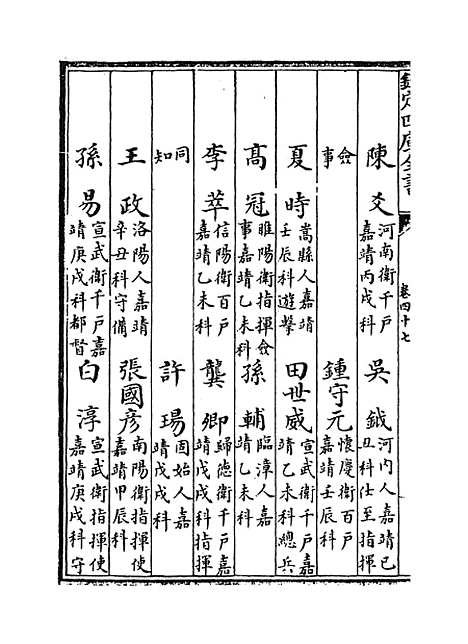 欽定四庫全書
卷四十七
陳爻 河南衛千戶嘉靖丙戌科 吳鉞 河内人嘉靖己丑科仕至指揮
僉事 鍾守元 懷慶衛百戶嘉靖壬辰科
夏時 嵩縣人嘉靖壬辰科遊擊 田世威 宣武衛千戶嘉靖乙未科總兵
髙冠 睢陽衛指揮僉事嘉靖乙未科 孫輔 臨漳人嘉靖乙未科
李萃 信陽衛百戶嘉靖乙未科 龔卿 歸德衛千戶嘉靖戊戌科指揮
同知 許瑒 固始人嘉靖戊戌科
王政 洛陽人嘉靖辛丑科守備 張國彦 南陽衛指揮使嘉靖甲辰科
孫易 宣武衛千戶嘉靖庚戌科都督 白淳 宣武衛指揮使嘉靖庚戌科守